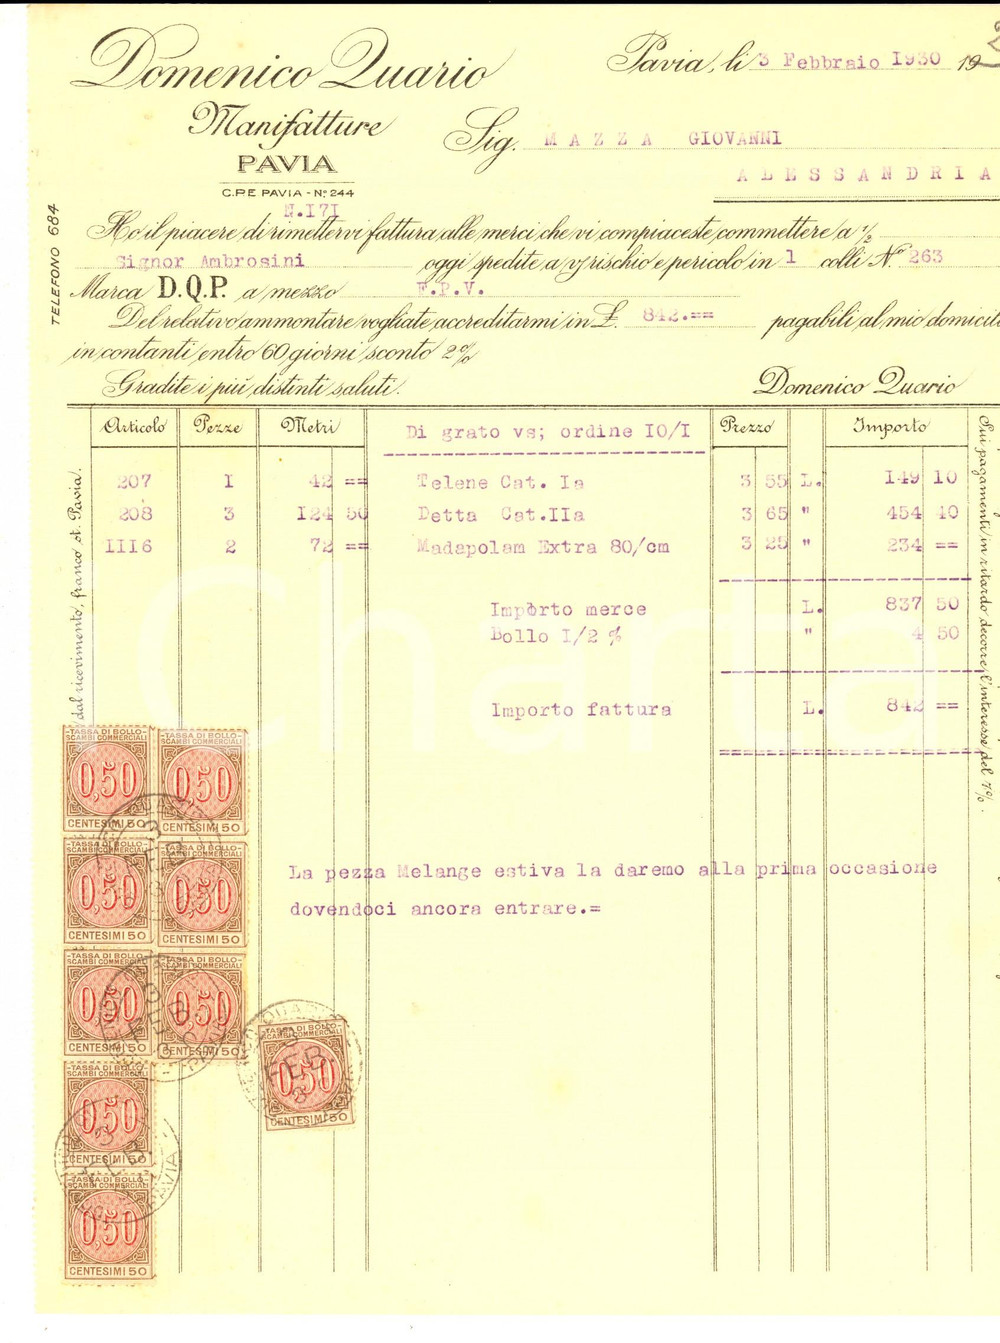 Domenico Quario
Manifatture
PAVIA
C.P.E PAVIA - Nº 244
Pavia, li 3 Febbraio 1930 19
Sig. MAZZA GIOVANNI
ALESSANDRIA
TELEFONO 684
N.171
Ho il piacere di rimettervi fattura alle merci che vi compiaceste commettere a ½
Signor Ambrosini oggi spedite a v/rischio e pericolo in 1 colli Nº 263
Marca D.Q.P. a mezzo F.P.V.
Del relativo ammontare vogliate accreditarmi in £. 842.== pagabili al mio domicilio
in contanti entro 60 giorni sconto 2%
Gradite i più distinti saluti. Domenico Quario
Articolo Pezze Metri Di grato vs; ordine IO/I Prezzo Importo
207 I 42 == Telene Cat. Ia 3 55 L. 149 10
208 3 124 50 Detta Cat.IIa 3 65 " 454 40
III6 2 72 == Madapolam Extra 80/cm 3 25 " 234 ==
Importo merce L. 837 50
Bollo I/2 % " 4 50
Importo fattura L. 842 ==
La pezza Melange estiva la daremo alla prima occasione
dovendoci ancora entrare.=
dal ricevimento, franco st. Pavia.
Sui pagamenti in ritardo decorre l'interesse del 7%.
TASSA DI BOLLO
SCAMBI COMMERCIALI
0,50
CENTESIMI 50
TASSA DI BOLLO
SCAMBI COMMERCIALI
0,50
CENTESIMI 50
TASSA DI BOLLO
SCAMBI COMMERCIALI
0,50
CENTESIMI 50
TASSA DI BOLLO
SCAMBI COMMERCIALI
0,50
CENTESIMI 50
TASSA DI BOLLO
SCAMBI COMMERCIALI
0,50
CENTESIMI 50
TASSA DI BOLLO
SCAMBI COMMERCIALI
0,50
CENTESIMI 50
TASSA DI BOLLO
SCAMBI COMMERCIALI
0,50
CENTESIMI 50
TASSA DI BOLLO
SCAMBI COMMERCIALI
0,50
CENTESIMI 50
TASSA DI BOLLO
SCAMBI COMMERCIALI
0,50
CENTESIMI 50
3 FEB
PAVIA